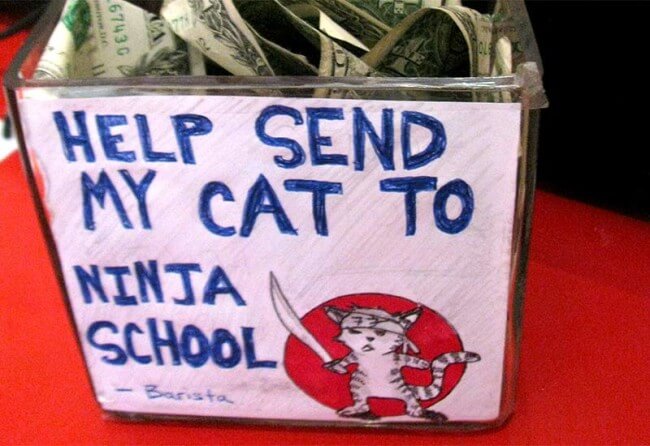 HELP SEND
MY CAT TO
NINJA
SCHOOL
- Barista